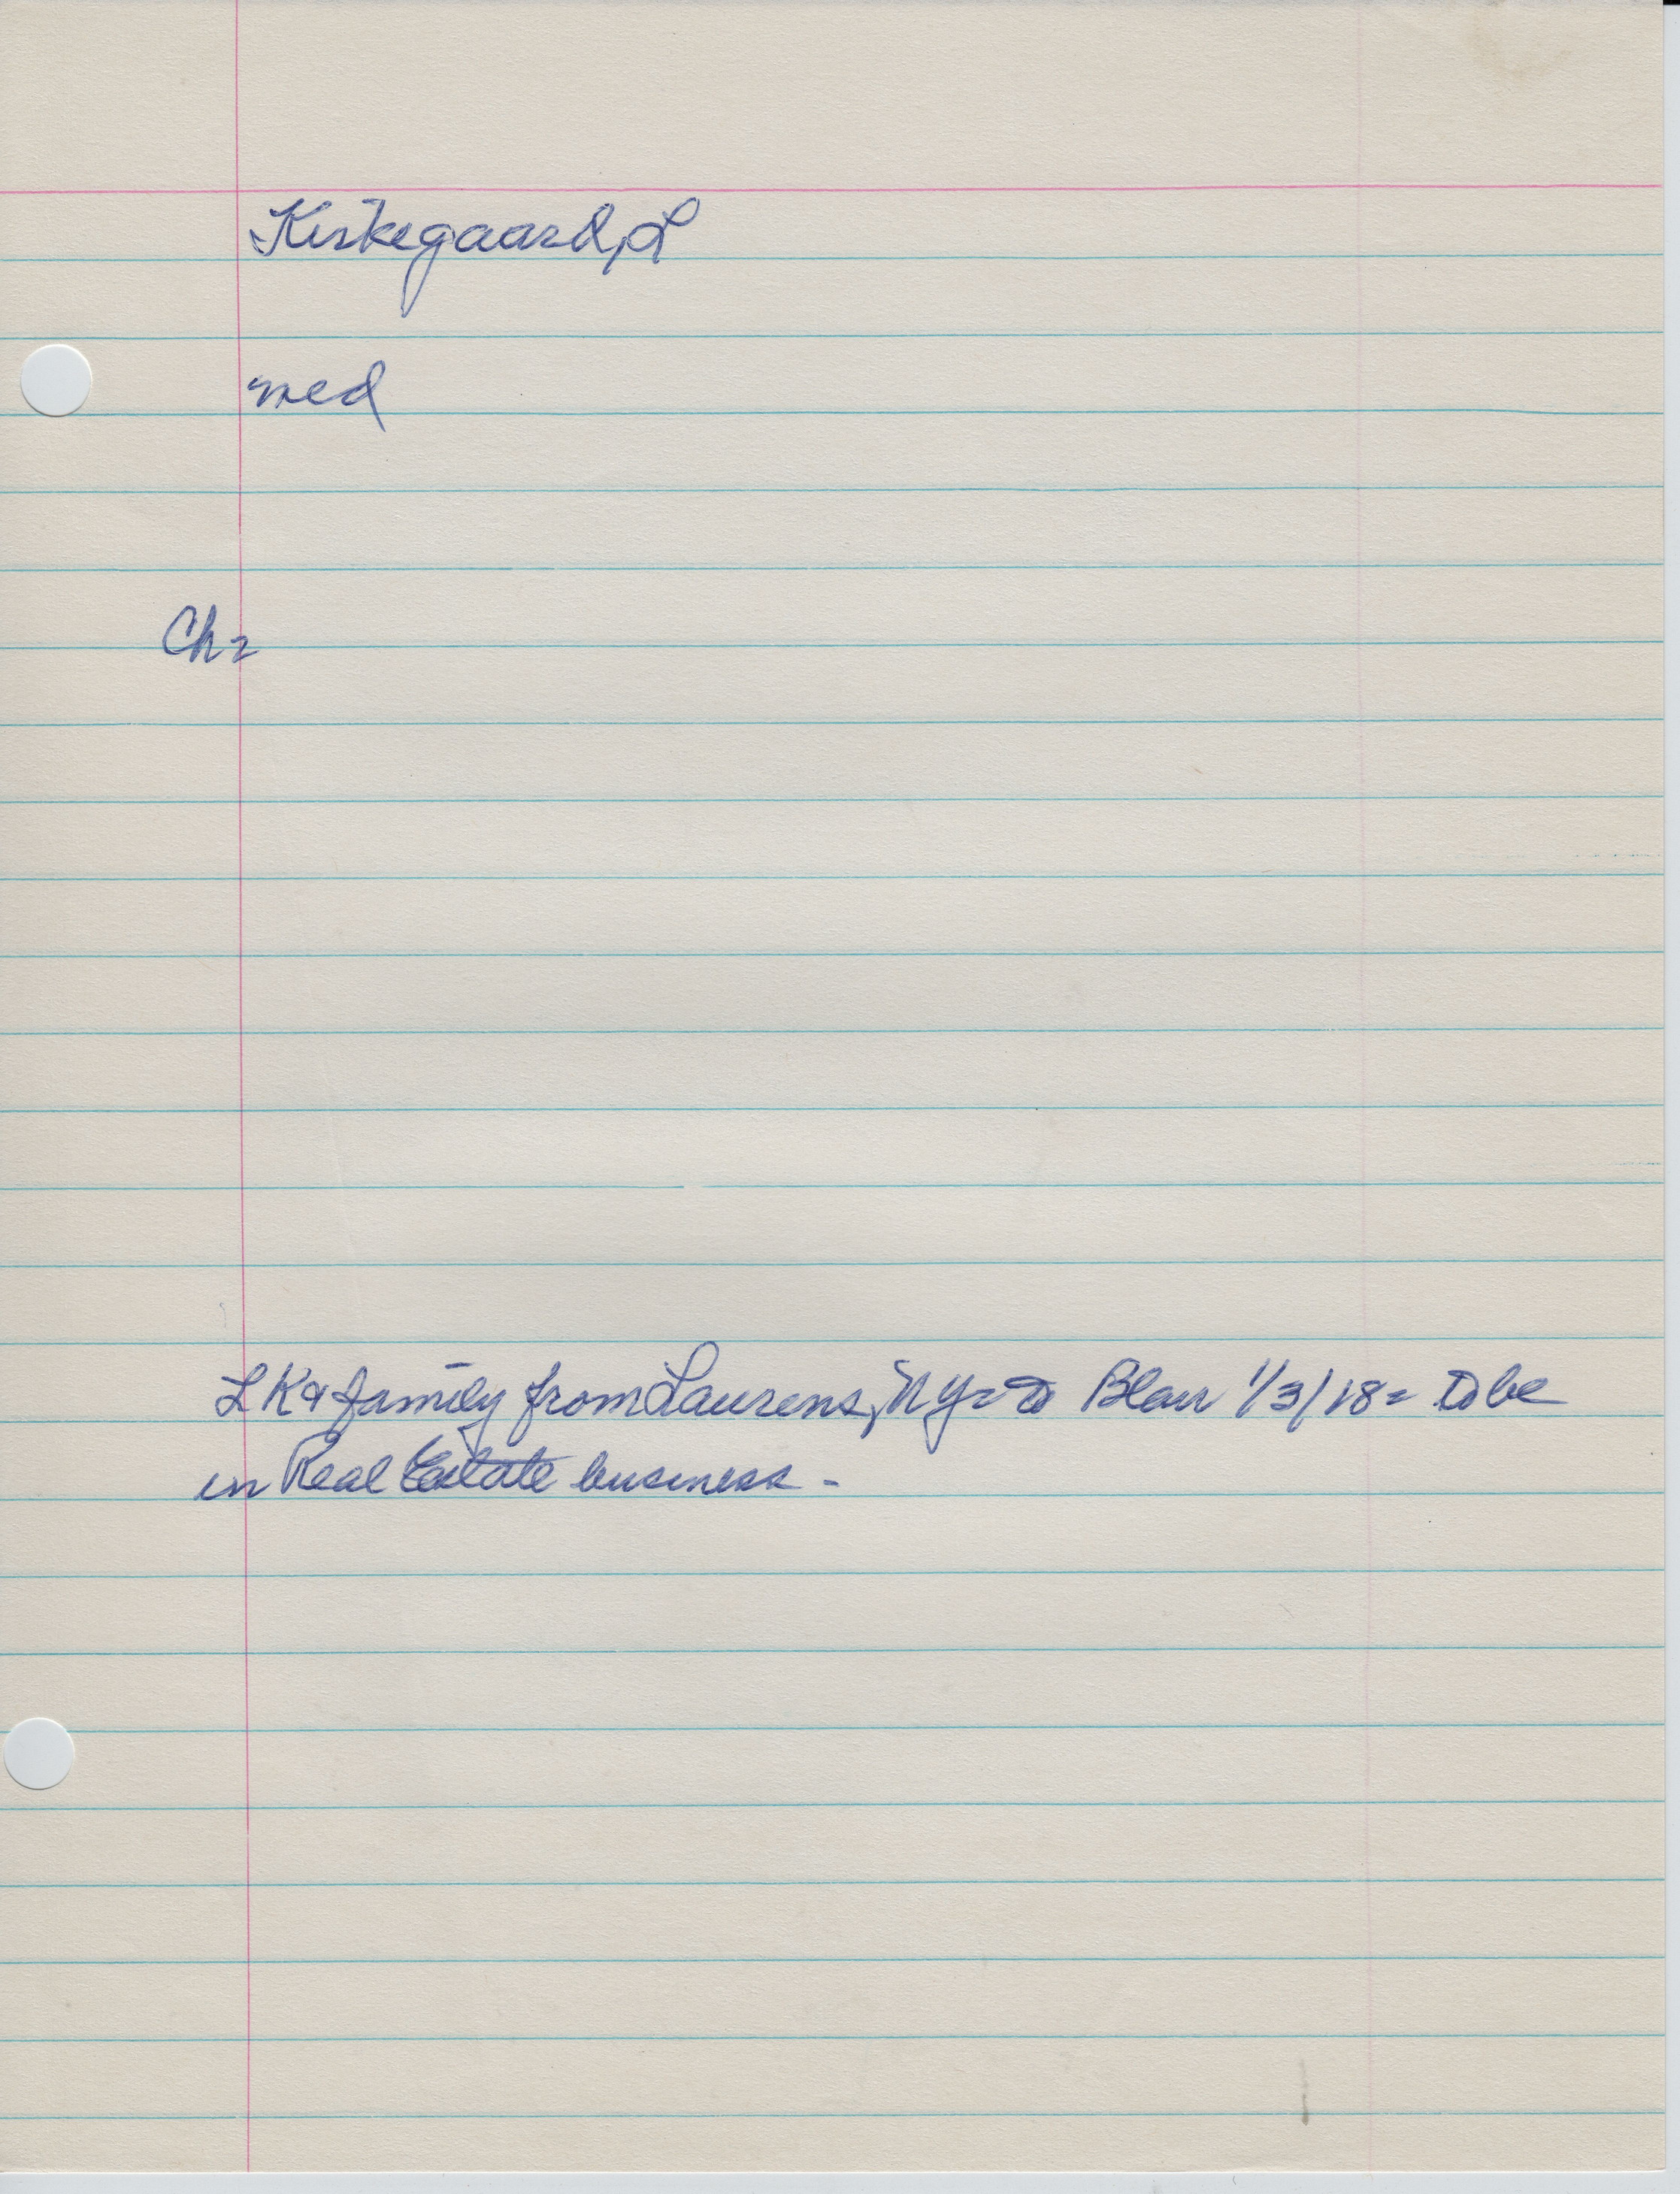 Kirkegaard, L
med
Ch =
L K & family from Laurens, NY = to Blair 1/3/18 = to be
in Real Estate business -